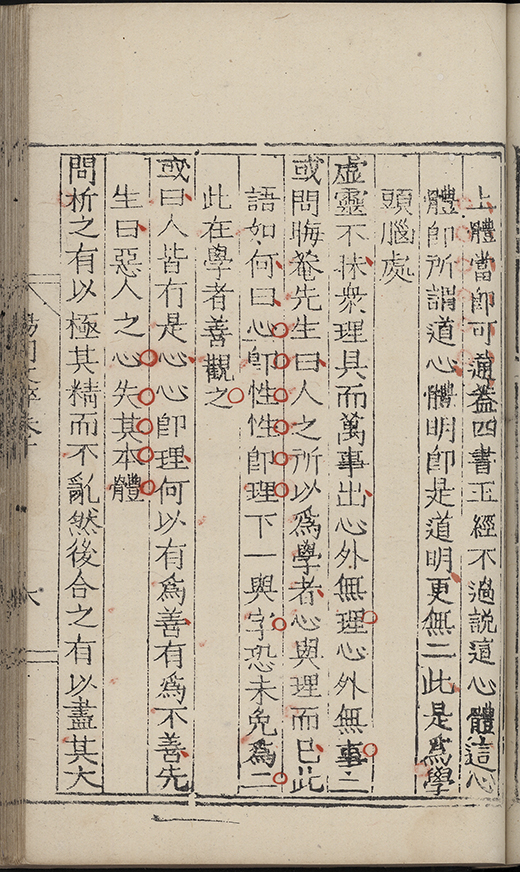 上體當即可通蓋四書五經不過說這心體這心
體即所謂道心體明即是道明更無二此是爲學
頭腦處
虛靈不昧衆理具而萬事出心外無理心外無事
或問晦菴先生曰人之所以爲學者心與理而已此
語如何曰心即性性即理下一與字恐未免爲二
此在學者善觀之
或曰人皆有是心心即理何以有爲善有爲不善先
生曰惡人之心失其本體
問析之有以極其精而不亂然後合之有以盡其大